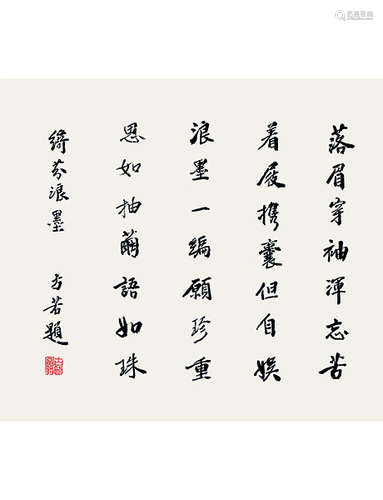 落眉穿袖渾忘苦
着屐携囊但自娱
浪墨一編願珍重
思如抽繭語如珠
綺芬浪墨
方若題